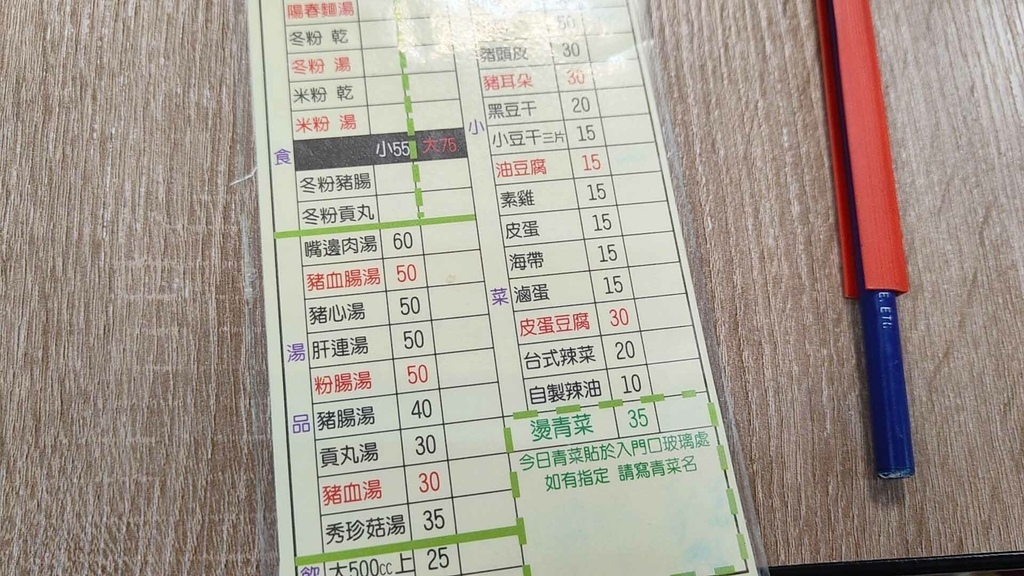 陽春麵 湯
冬粉 乾
冬粉 湯
米粉 乾
米粉 湯
食
小55 大75
冬粉豬腸
冬粉貢丸
嘴邊肉湯 60
豬血腸湯 50
豬心湯 50
肝連湯 50
粉腸湯 50
豬腸湯 40
貢丸湯 30
豬血湯 30
秀珍菇湯 35
湯品
飲 大500cc上 25
50
豬頭皮 30
豬耳朵 30
黑豆干 20
小豆干三片 15
油豆腐 15
素雞 15
皮蛋 15
海帶 15
滷蛋 15
皮蛋豆腐 30
台式辣菜 20
自製辣油 10
小菜
燙青菜 35
今日青菜貼於入門口玻璃處
如有指定 請寫青菜名